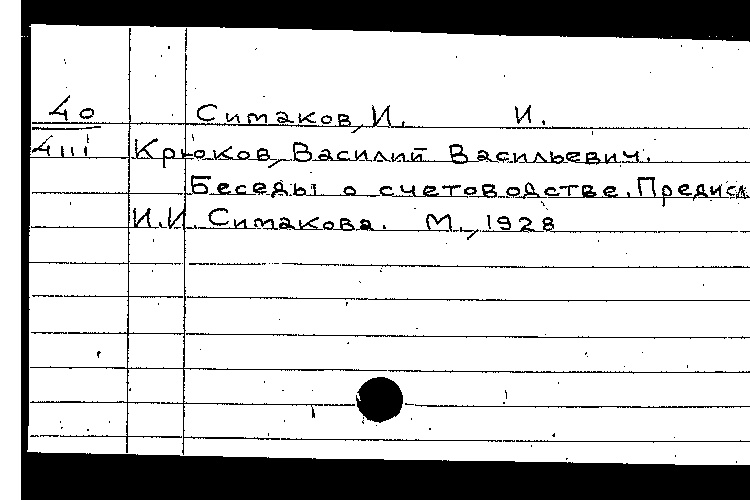 40 Ситаков, И. И.
4111 Крюков, Василий Васильевич.
Беседы о счетоводстве. Предисл
И.И. Ситакова. М., 1928